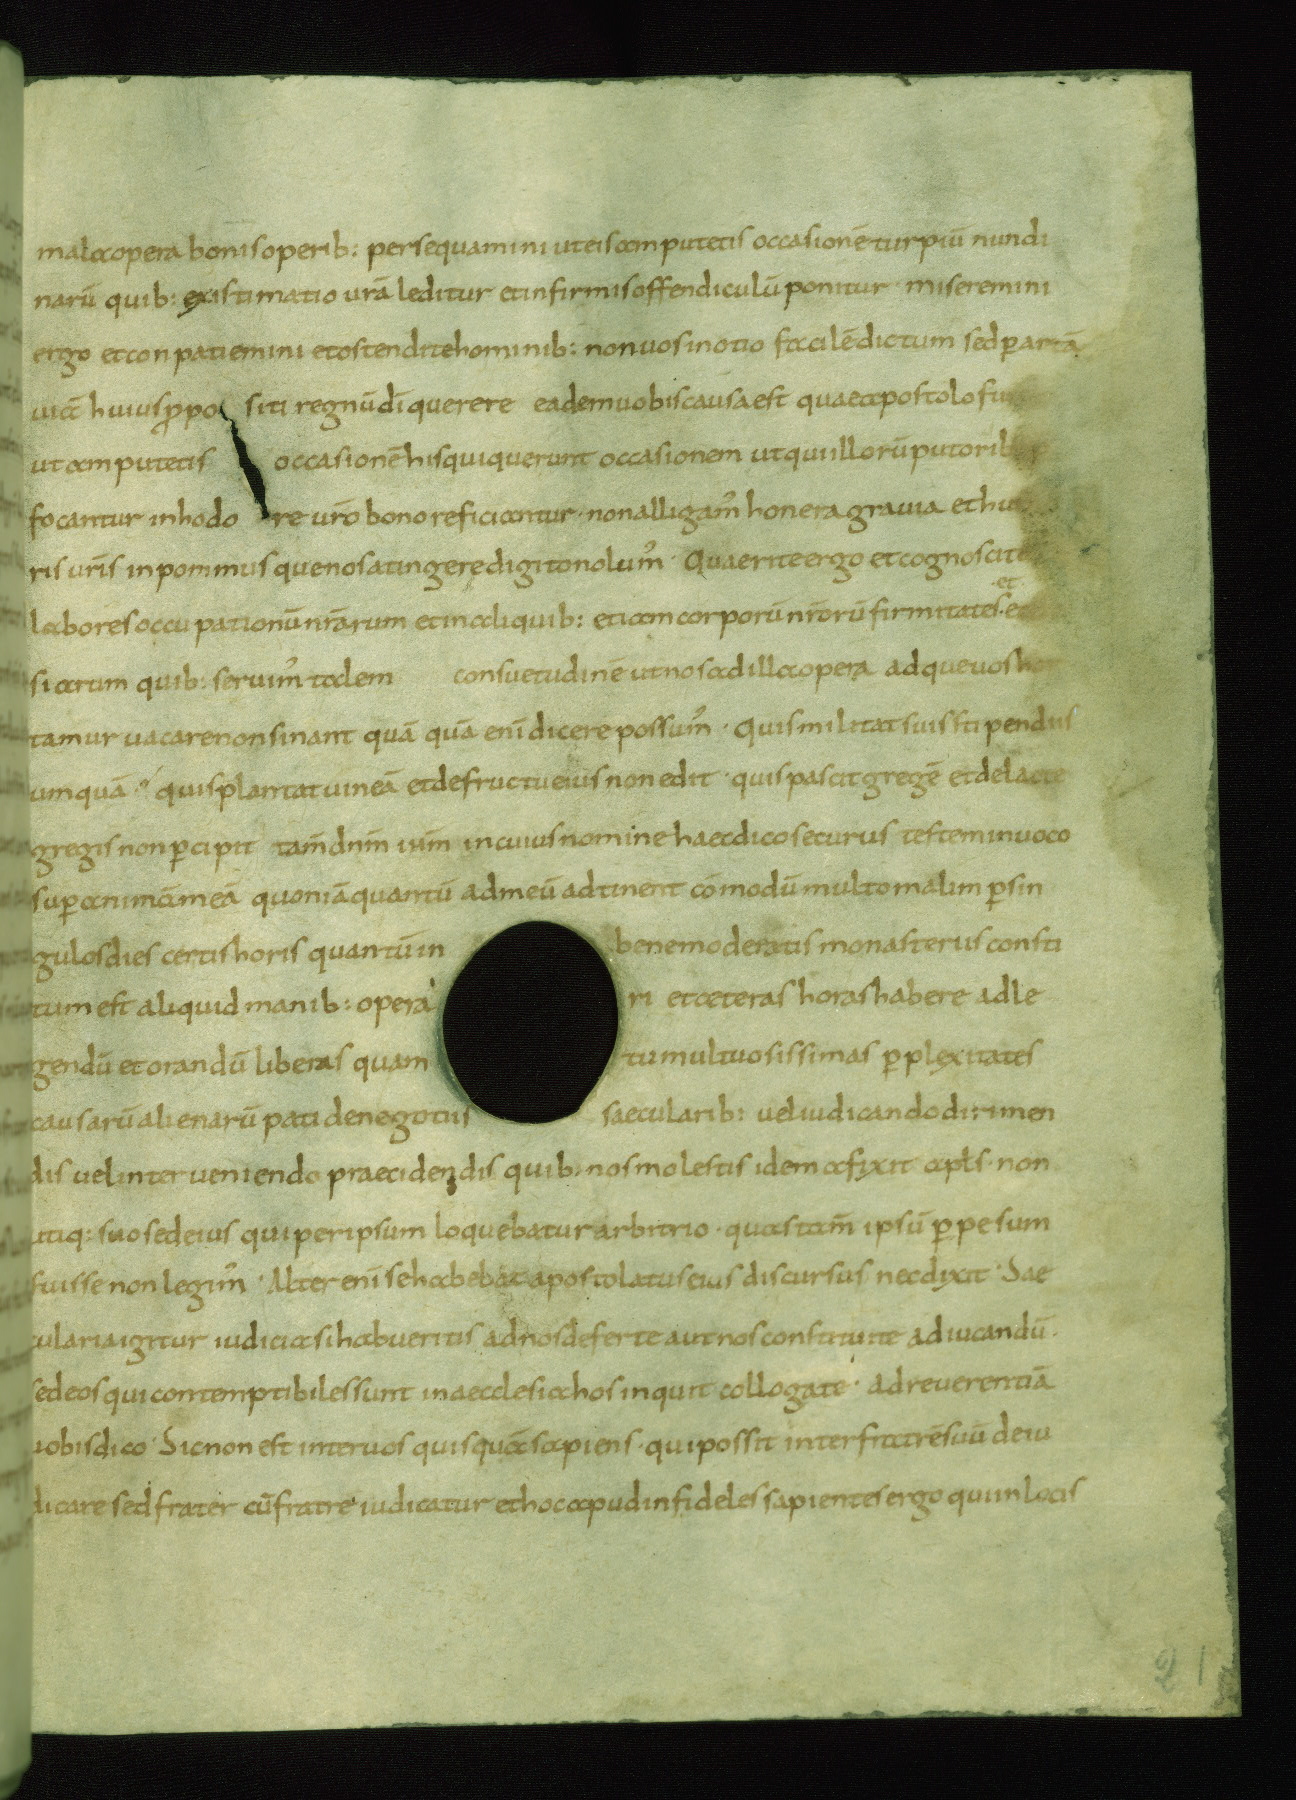 mala opera bonis operib: persequamini ut eis amputetis occasionē turpiū nundi
narū quib: existimatio urā leditur et infirmis offendiculū ponitur · miseremini
ergo et conpatiemini et ostendite hominib: non vos in otio facilē dictum sed p artā
uiā huius ppo siti regnū dī querere eadem uobis causa est quae apostolo fu
ut amputetis occasionē his qui querunt occasionem ut qui illorū putorib:
focantur in hodo re urō bono reficiantur · non alligam᾽ honera grauia et hu
ris urīs inpommus que nos atingere digito nolum᾽ · Quaerite ergo et cognoscite
labores occupationū nrārum et in aliquib: etiam corporū nrōrū firmitates · et
siarum quib: seruim᾽ talem consuetudinē ut nos ad illa opera ad que uos hor
tamur uacare non sinant quā quā enī dicere possum᾽ · Quis militat suis stipendiis
umquā · quis plantat uineā et de fructu eius non edit · quis pascit gregē et de lacte
gregis non pcipit tam̄ dnm̄ ium̄ in cuius nomine haec dico securus testem inuoco
sup animā meā quoniā quantū ad meū adtinent cōmodū multo malim p sin
gulos dies certis horis quantū in bene moderatis monasteriis consti
tum est aliquid manib: opera ri et ceteras horas habere ad le
gendū et orandū liberas quam tumultuosissimas pplexitates
causarū alienarū pati de negotiis saecularib: uel iudicando dirimen
dis uel interueniendo praecidendis quib: nos molestis idem afixit apls · non
utiq: suo sed eius qui per ipsum loquebatur arbitrio · quas tam̄ ipsū ppesum
fuisse non legim᾽ · Alter enī se habebat apostolatus eius discursus nec dixit · Sae
cularia igitur iudicia si habueritis ad nos deferte aut nos constituite ad iucandū ·
sed eos qui contemptibiles sunt in aecclesia hos inquit collogate · ad reuerentiā
uobis dico · Sic non est inter uos quisquā sapiens · qui possit inter fratrē suū deiu
dicare sed frater cū fratre iudicatur et hoc apud infideles sapientes ergo qui in locis
21